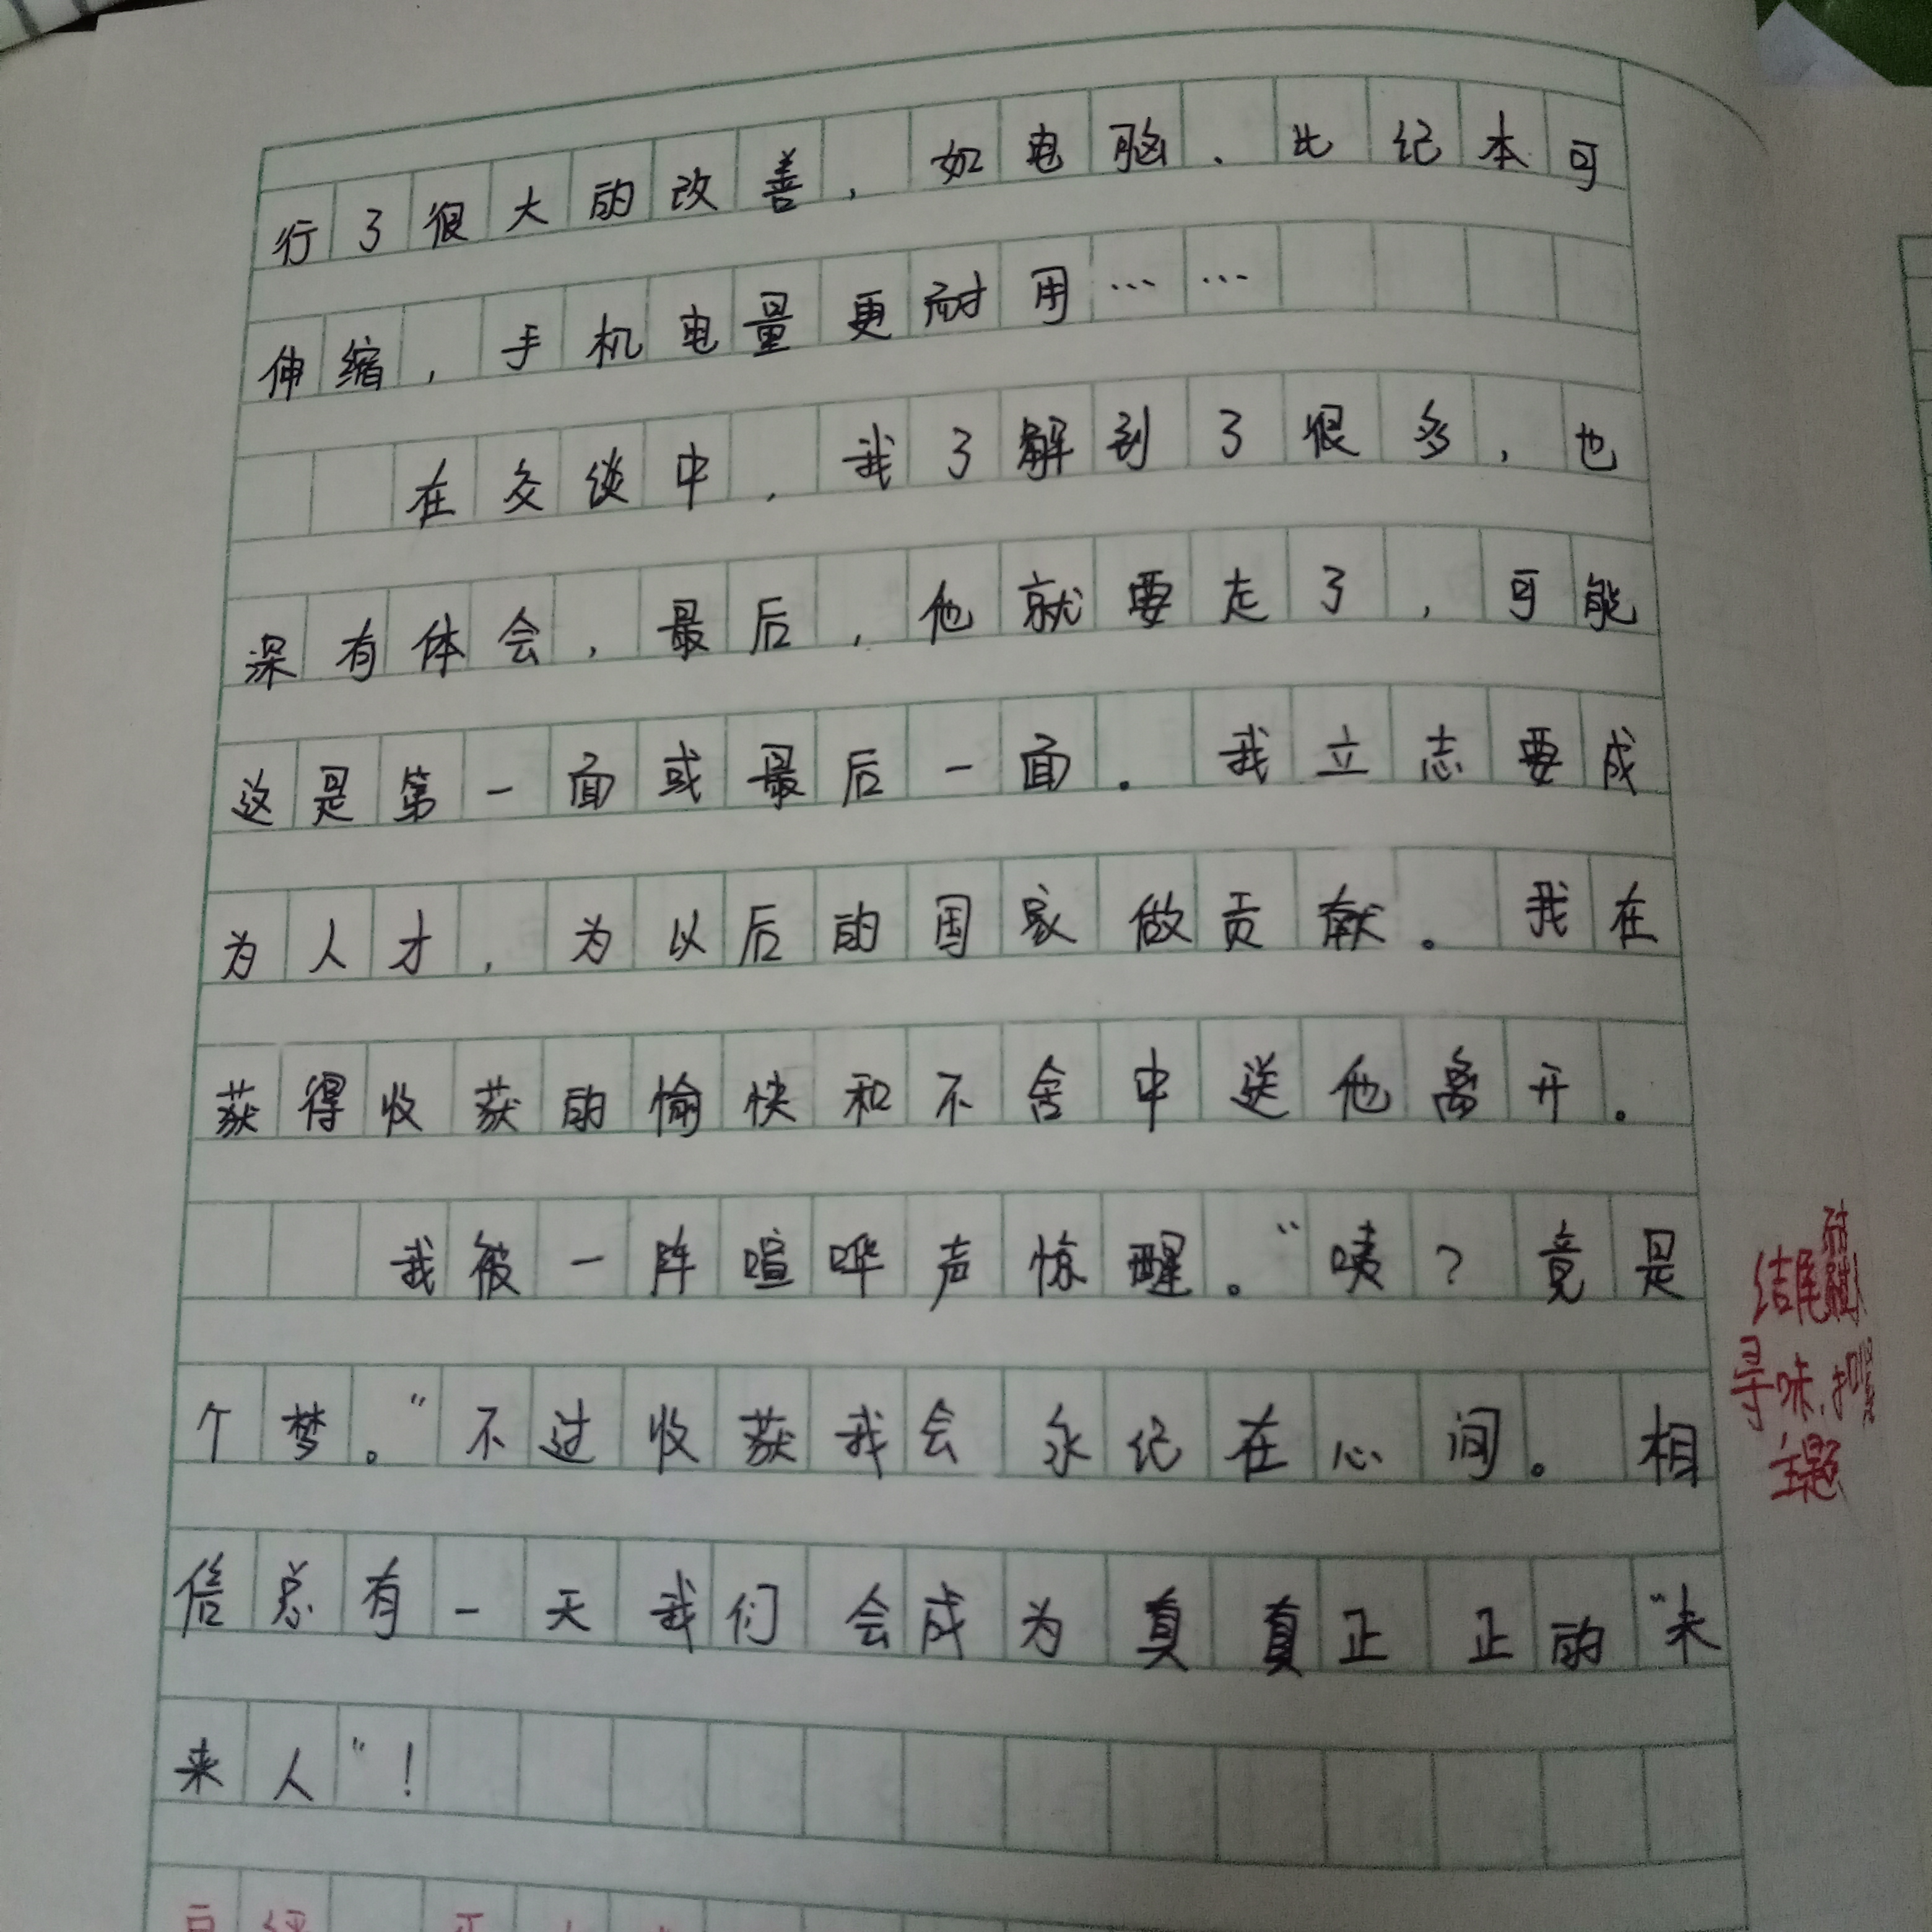 行了很大的改善，如电脑、比记本可
伸缩，手机电量更耐用……
在交谈中，我了解到了很多，也
深有体会，最后，他就要走了，可能
这是第一面或最后一面。我立志要成
为人才，为以后的国家做贡献。我在
获得收获的愉快和不舍中送他离开。
我被一阵喧哗声惊醒。“咦？竟是
个梦。”不过收获我会永记在心间。相
信总有一天我们会成为真真正正的“未
来人”！
结尾耐
寻味，
主题